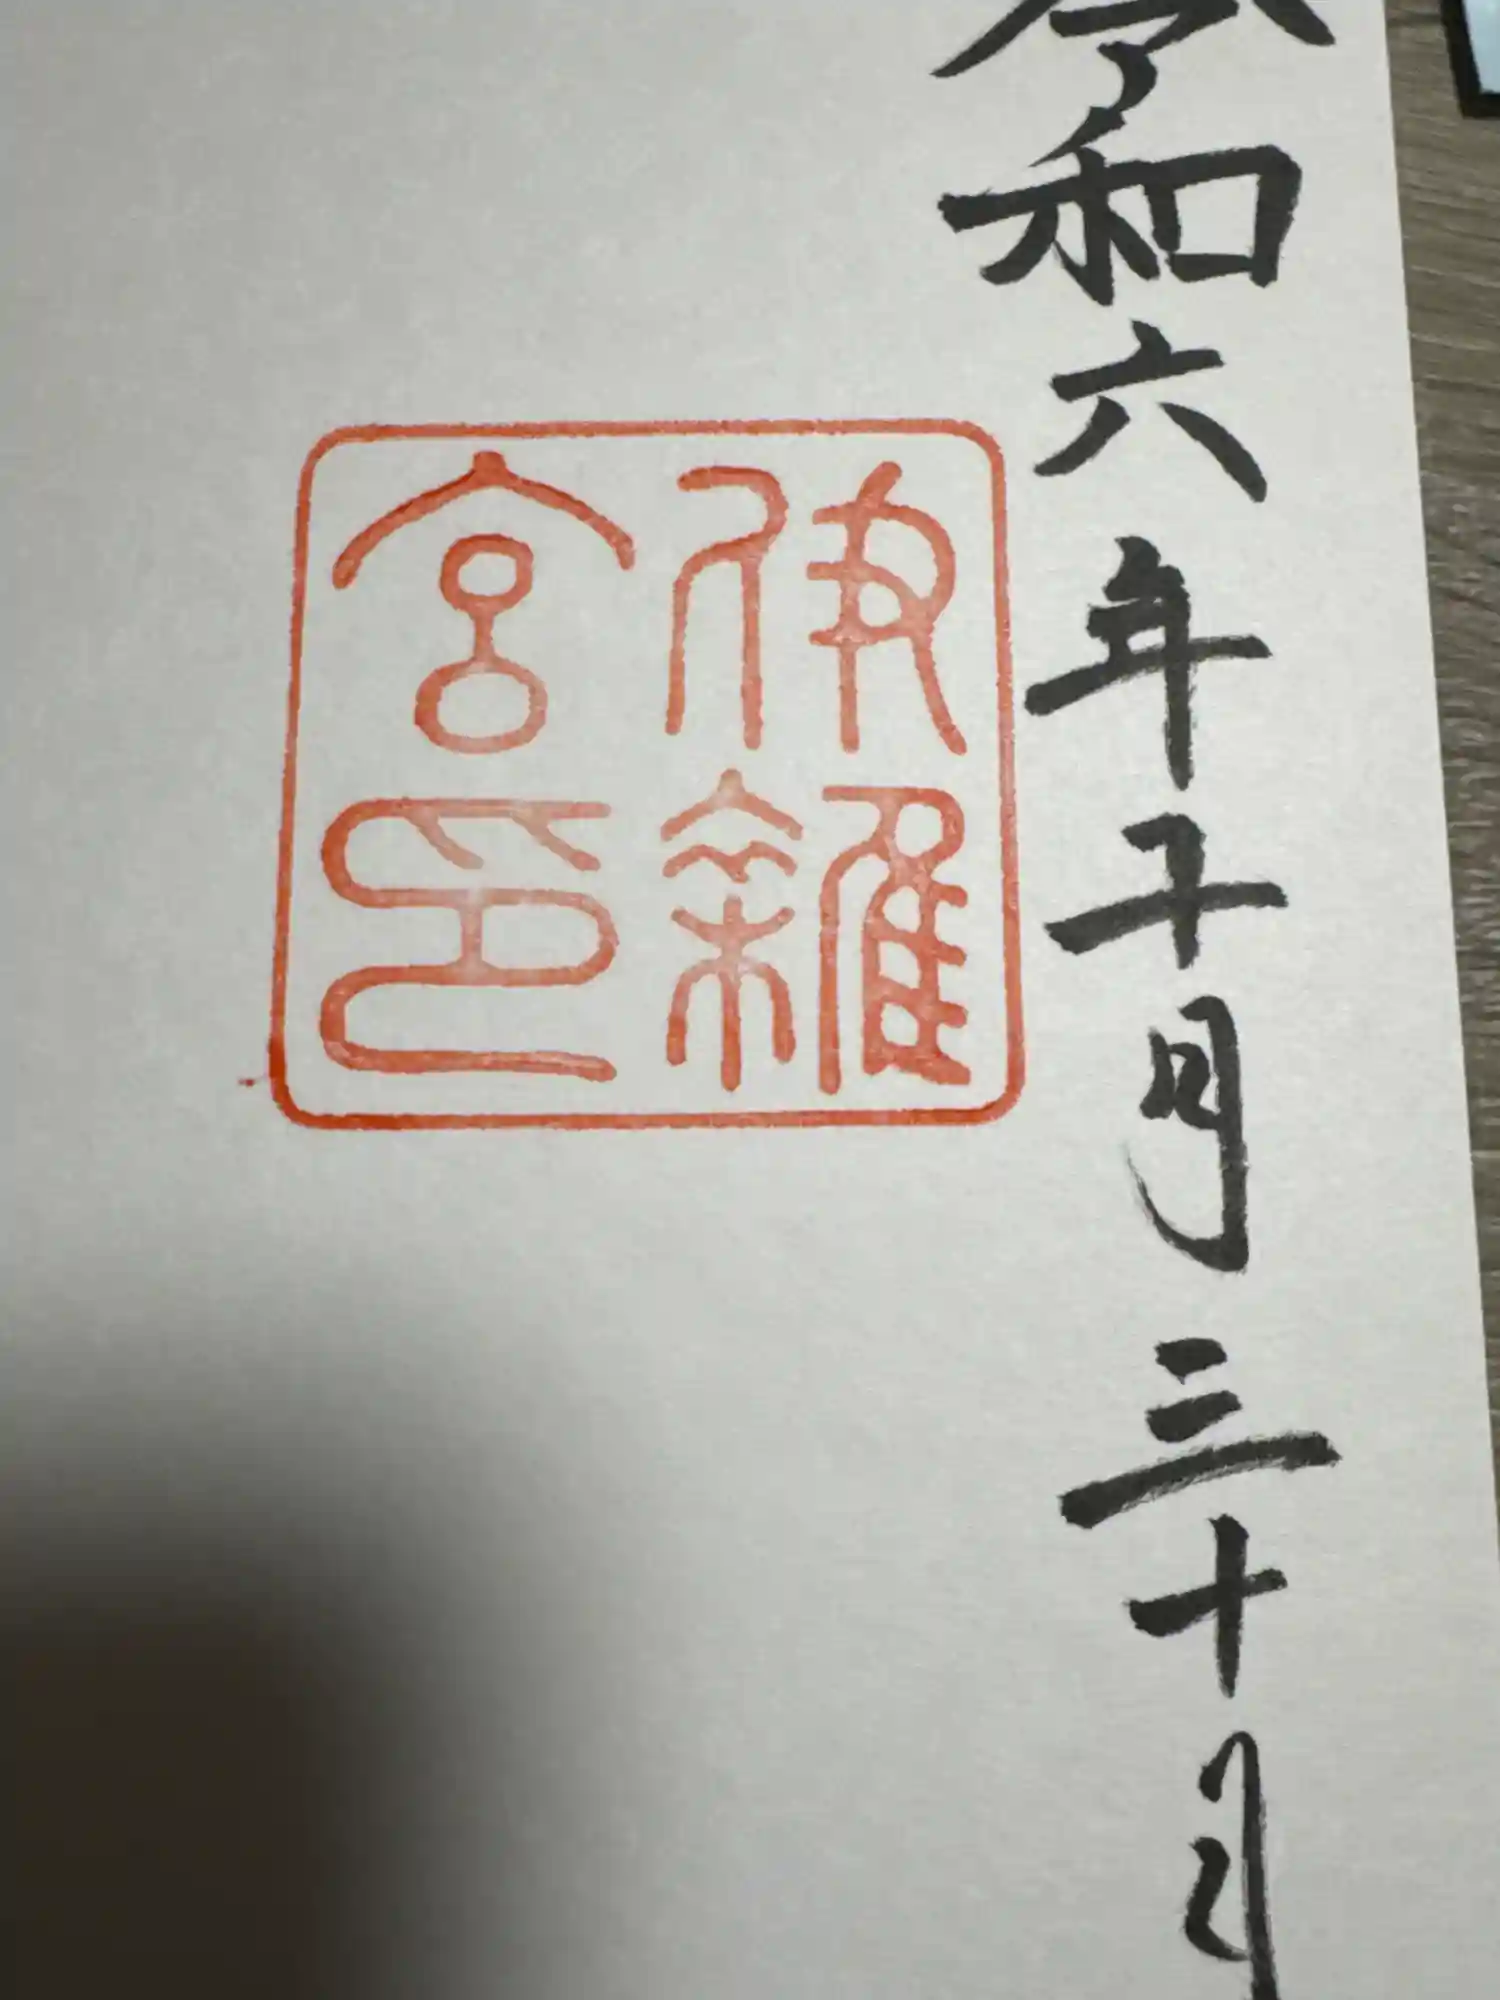 令和六年十月三十日
伊雜
宮印